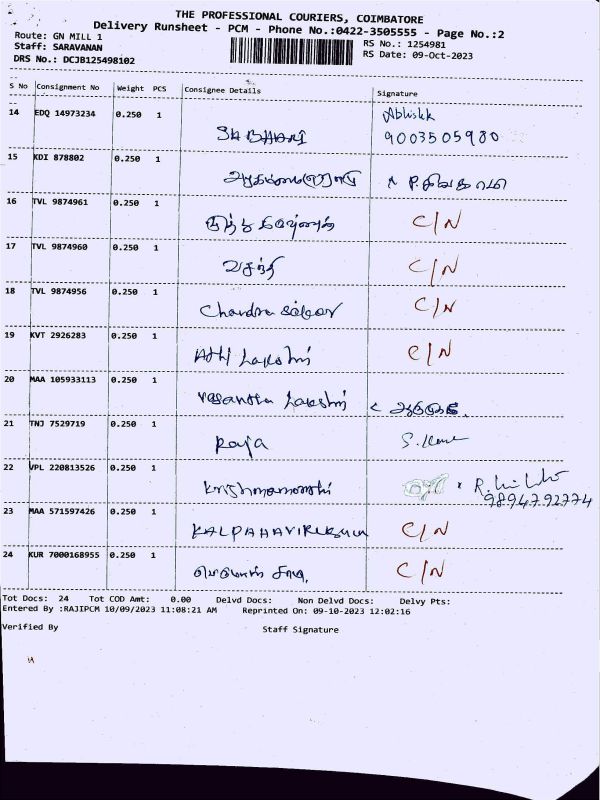 THE PROFESSIONAL COURIERS, COIMBATORE
Delivery Runsheet - PCM - Phone No.:0422-3505555 - Page No.:2
Route: GN MILL 1
Staff: SARAVANAN
DRS No.: DCJB125498102
RS No.: 1254981
RS Date: 09-Oct-2023
S No Consignment No Weight PCS Consignee Details Signature
14 EDQ 14973234 0.250 1 Abhishk
9003505980
15 KDI 878802 0.250 1
16 TVL 9874961 0.250 1 C/N
17 TVL 9874960 0.250 1 வசந்தி C/N
18 TVL 9874956 0.250 1 Chandra C/N
19 KVT 2926283 0.250 1 Athi Lakshmi C/N
20 MAA 105933113 0.250 1 Vasantha Lakshmi
21 TNJ 7529719 0.250 1 Raja
22 VPL 220813526 0.250 1 Krishnamoorthi
9894792774
23 MAA 571597426 0.250 1 C/N
24 KUR 7000168955 0.250 1 C/N
Tot Docs: 24 Tot COD Amt: 0.00 Delvd Docs: Non Delvd Docs: Delvy Pts:
Entered By :RAJIPCM 10/09/2023 11:08:21 AM Reprinted On: 09-10-2023 12:02:16
Verified By Staff Signature